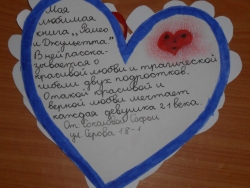 Моя
любимая
книга „Ромео
и Джульетта".
В ней расска-
зывается о
красивой любви и трагической
гибели двух подростков.
О такой красивой и
верной любви мечтает
каждая девушка 21 века.
От Соф
ул. Серова 18-1